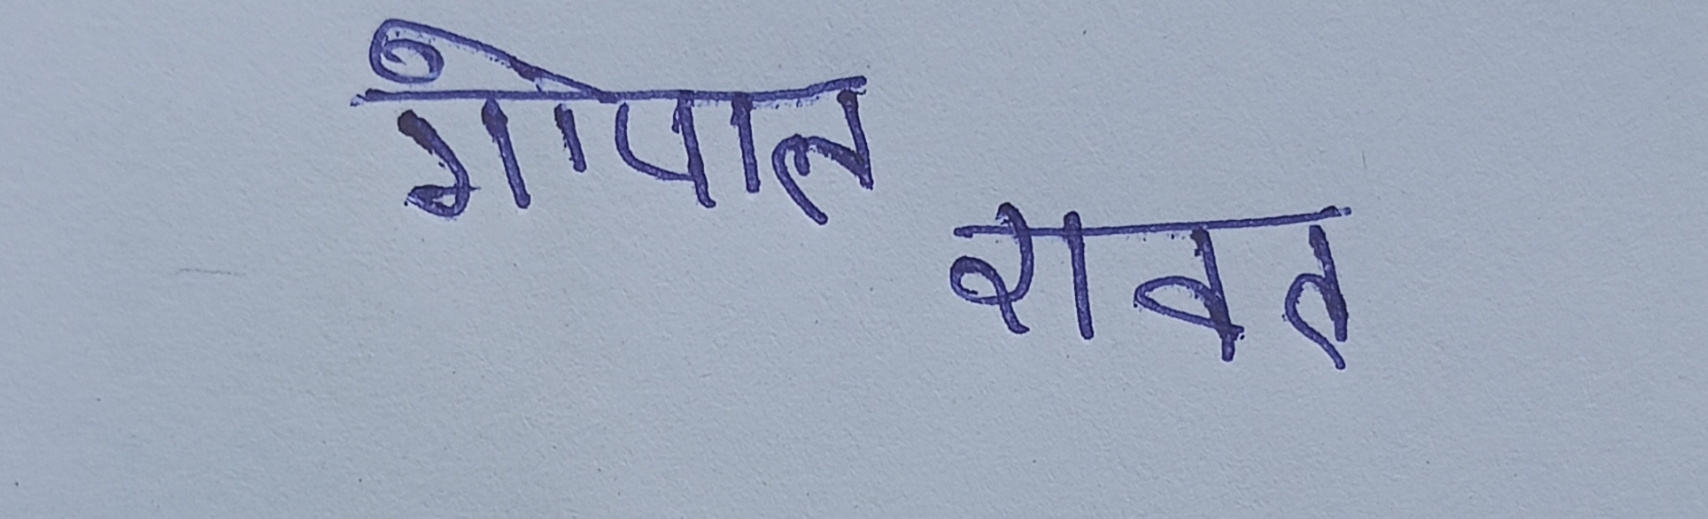 गोपाल
रावत